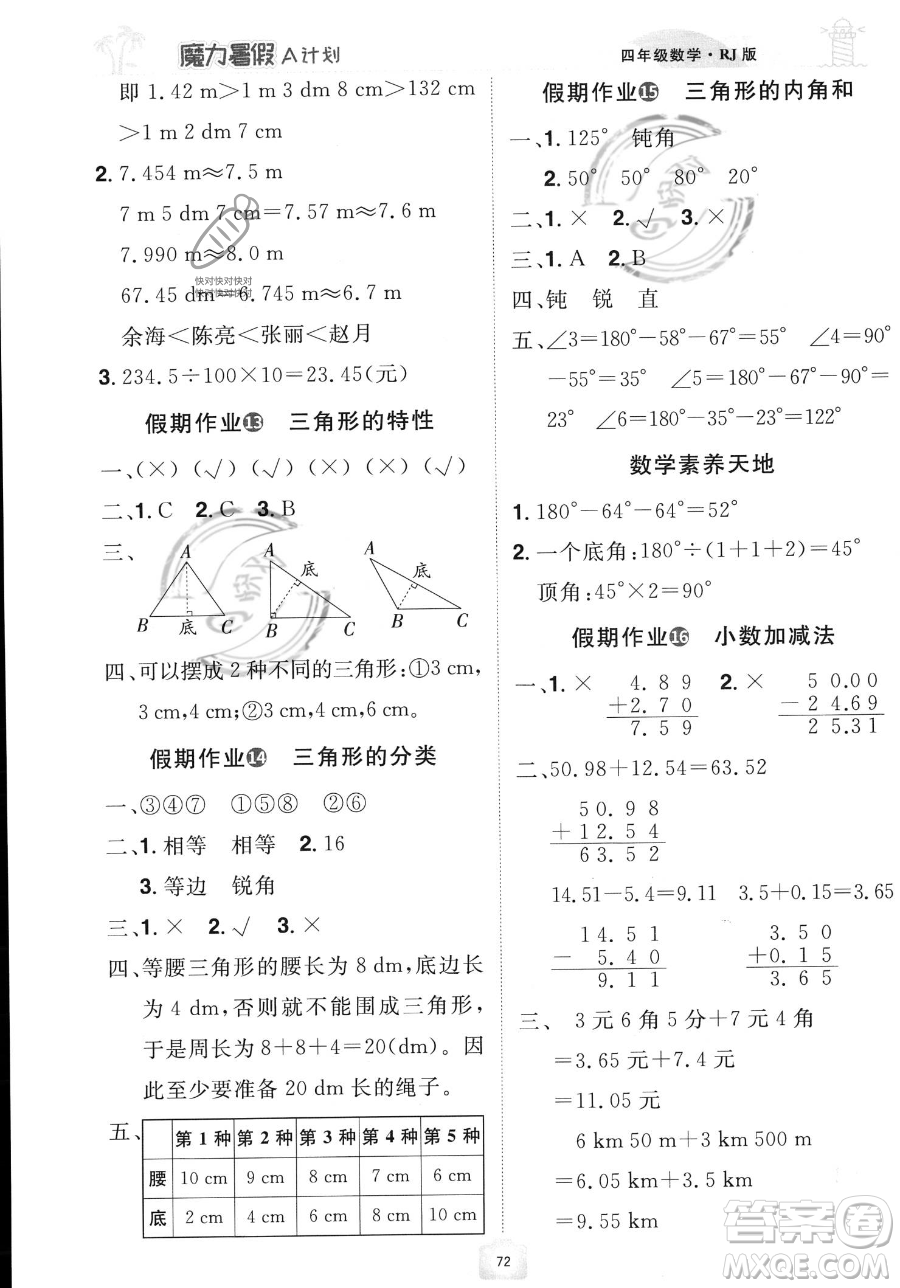 魔力暑假A计划
四年级数学·RJ版
即 1.42 m＞1 m 3 dm 8 cm＞132 cm
＞1 m 2 dm 7 cm
2. 7.454 m≈7.5 m
7 m 5 dm 7 cm=7.57 m≈7.6 m
7.990 m≈8.0 m
67.45 dm=6.745 m≈6.7 m
余海＜陈亮＜张丽＜赵月
3. 234.5÷100×10=23.45(元)
假期作业13 三角形的特性
一、(×) (√) (√) (×) (×) (√)
二、1. C 2. C 3. B
三、
A 底 B C
A 底 B C
A B 底 C
四、可以摆成 2 种不同的三角形:①3 cm,
3 cm,4 cm;②3 cm,4 cm,6 cm。
假期作业14 三角形的分类
一、③④⑦ ①⑤⑧ ②⑥
二、1. 相等 相等 2. 16
3. 等边 锐角
三、1. × 2. √ 3. ×
四、等腰三角形的腰长为 8 dm,底边长
为 4 dm,否则就不能围成三角形,
于是周长为 8+8+4=20(dm)。因
此至少要准备 20 dm 长的绳子。
五、
第 1 种 第 2 种 第 3 种 第 4 种 第 5 种
腰 10 cm 9 cm 8 cm 7 cm 6 cm
底 2 cm 4 cm 6 cm 8 cm 10 cm
假期作业15 三角形的内角和
一、1. 125° 钝角
2. 50° 50° 80° 20°
二、1. × 2. √ 3. ×
三、1. A 2. B
四、钝 锐 直
五、∠3=180°−58°−67°=55° ∠4=90°
−55°=35° ∠5=180°−90°−67°=
23° ∠6=180°−35°−23°=122°
数学素养天地
1. 180°−64°−64°=52°
2. 一个底角:180°÷(1+1+2)=45°
顶角:45°×2=90°
假期作业16 小数加减法
一、1. × 2. ×
4.89 50.00
+2.70 −24.69
7.59 25.31
二、50.98+12.54=63.52
50.98
+12.54
63.52
14.51−5.4=9.11 3.5+0.15=3.65
14.51 3.50
− 5.40 +0.15
9.11 3.65
三、 3 元 6 角 5 分+7 元 4 角
=3.65 元+7.4 元
=11.05 元
6 km 50 m+3 km 500 m
=6.05 km+3.5 km
=9.55 km
72
快对快对快对
快对快对快对
答案圈